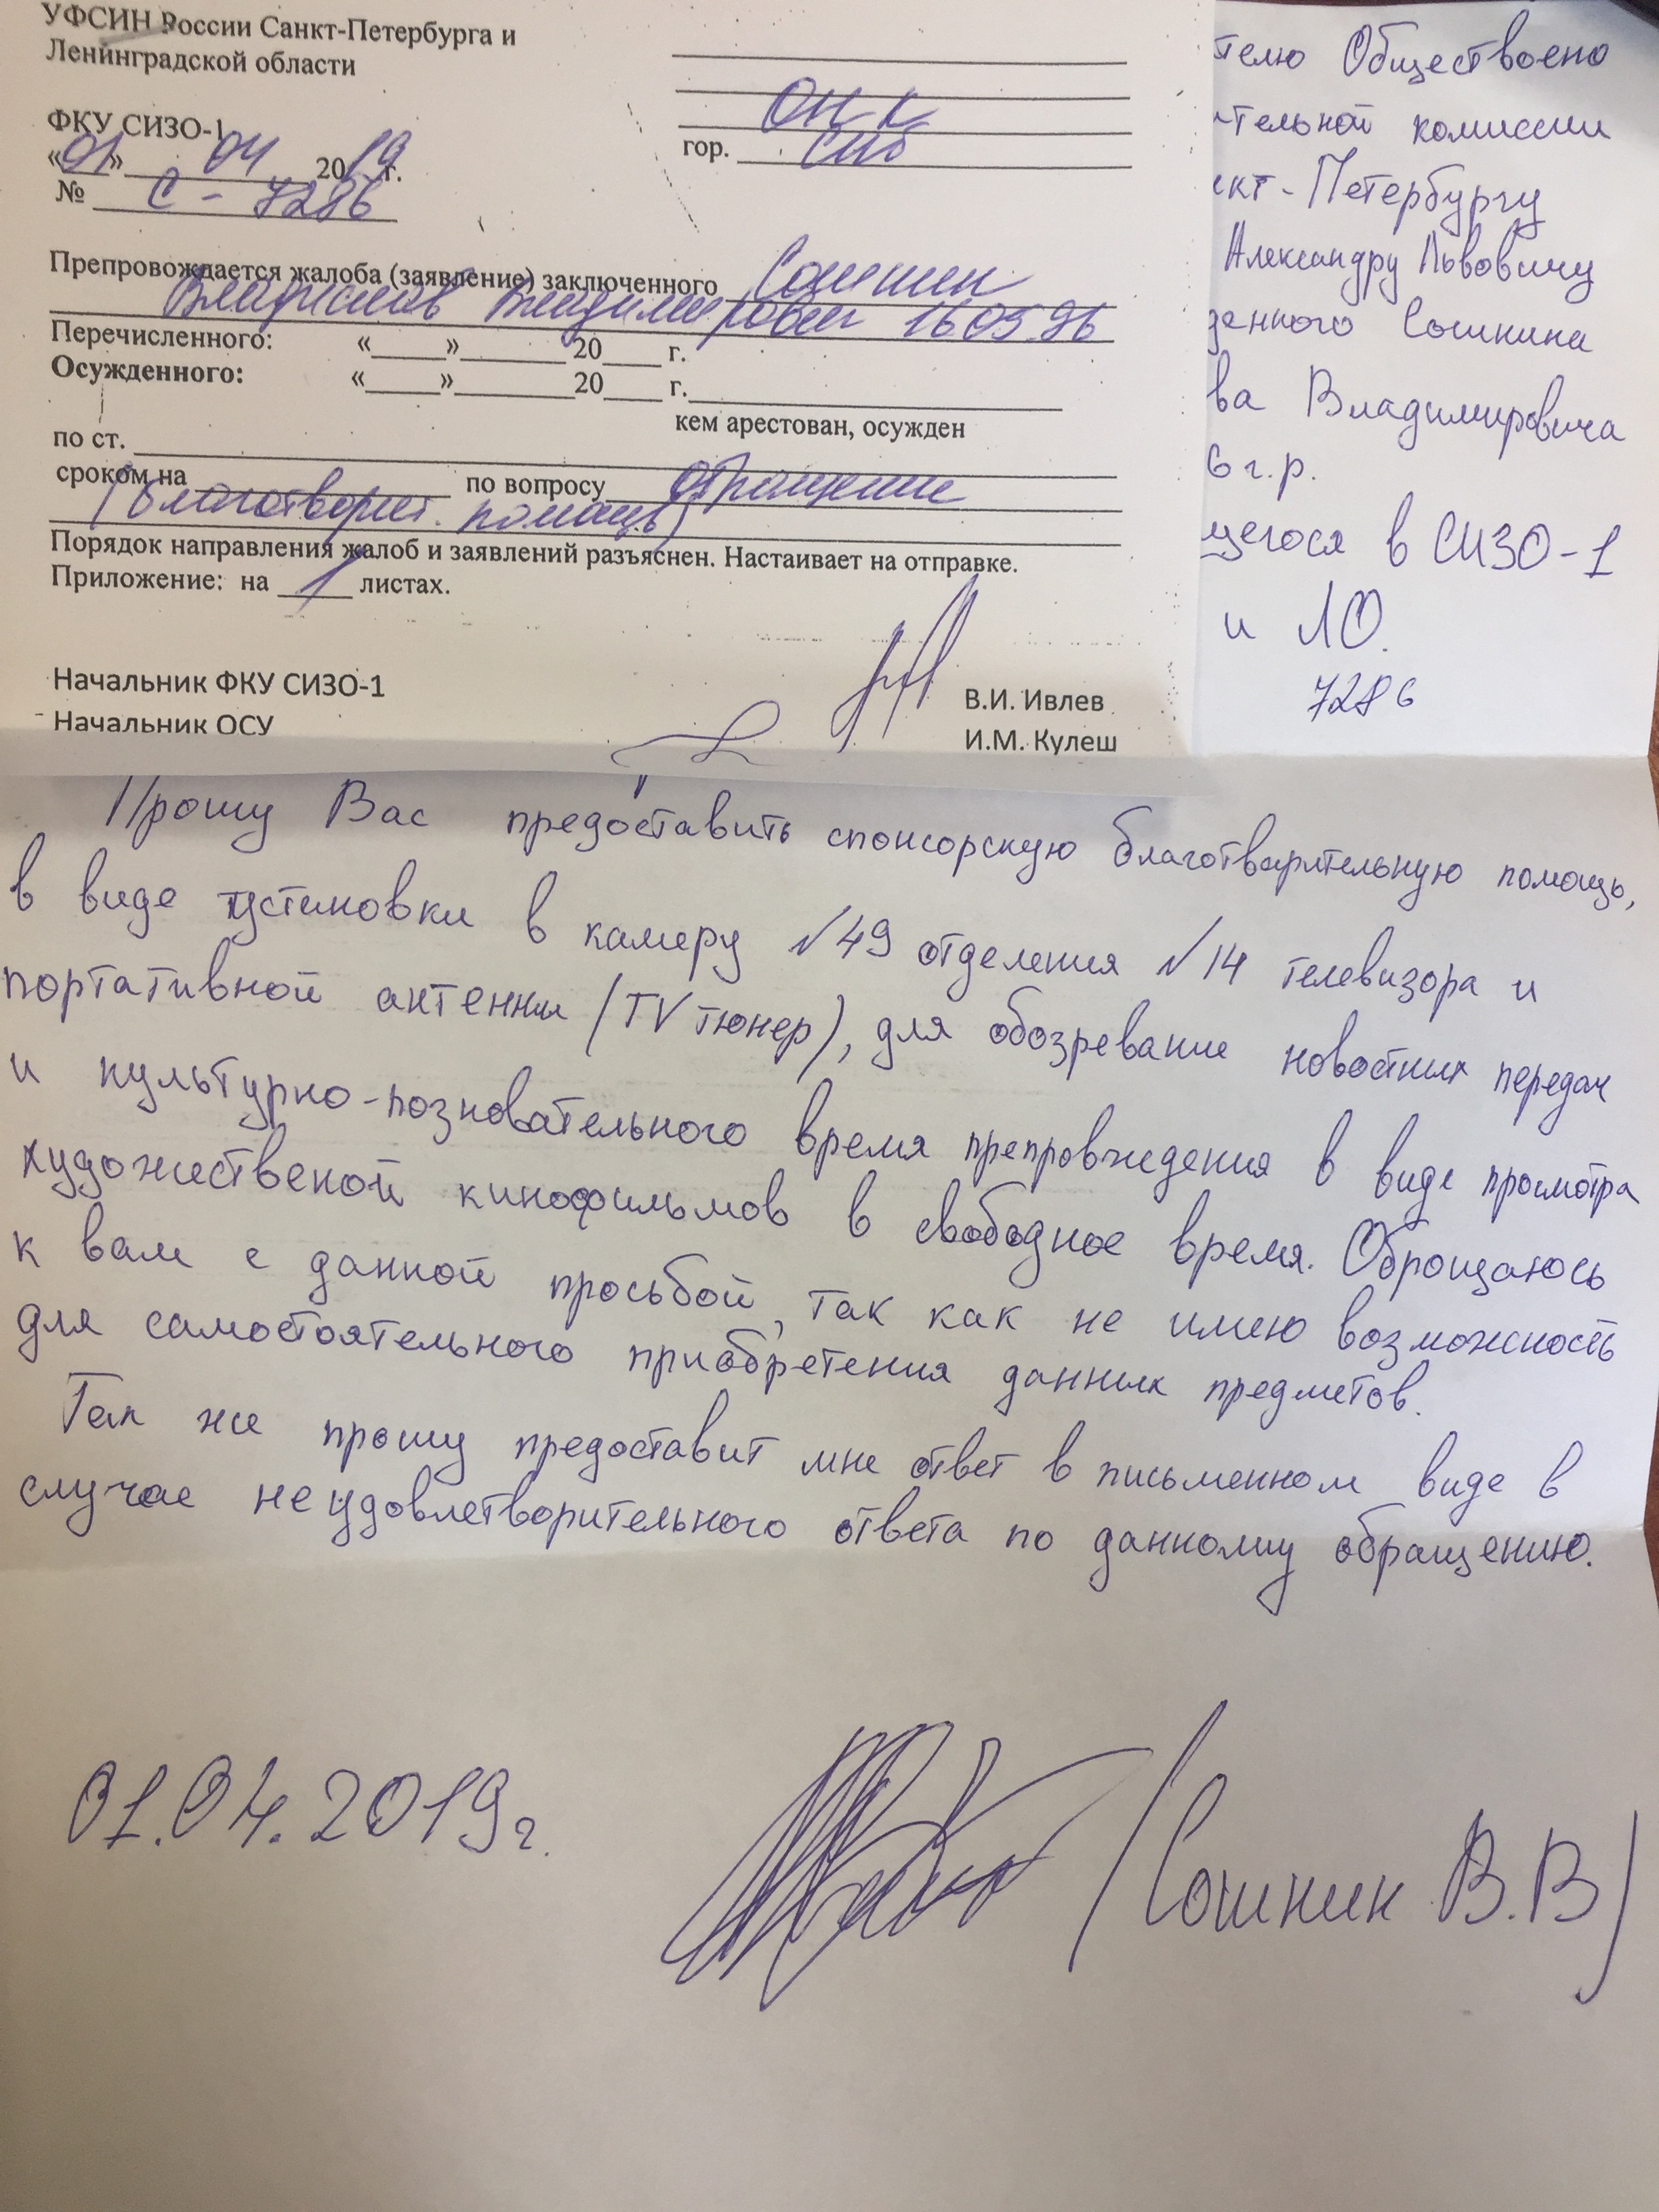 УФСИН России Санкт-Петербурга и
Ленинградской области
ФКУ СИЗО-1
«01» 04 2019 г.
№ С - 7286
ОНК
гор. СПб
Препровождается жалоба (заявление) заключенного Сошнин
Владимирович 16 05 96
Перечисленного: «____» ______ 20___ г.
Осужденного: «____» ______ 20___ г.
кем арестован, осужден
по ст.
сроком на по вопросу обращение
(благотворит. помощь)
Порядок направления жалоб и заявлений разъяснен. Настаивает на отправке.
Приложение: на 1 листах.
Начальник ФКУ СИЗО-1 В.И. Ивлев
Начальник ОСУ И.М. Кулеш
телю Обществоено
тельной комиссии
кт-Петербургу
Александру Львовичу
денного Сошнина
ва Владимировича
6 г.р.
щегося в СИЗО-1
и ЛО.
7286
Прошу Вас предоставить спонсорскую благотварительную помощь,
в виде установки в камеру №49 отделения №14 телевизора и
портативной антенны (TV тюнер), для обозревание новостных передач
и культурно-позновательного время препровждения в виде просмотра
художественой кинофильмов в свободное время. Оброщаюсь
к вам с данной просьбой, так как не имею возможность
для самостоятельного приобретения данных предметов.
Так же прошу предоставит мне ответ в письменном виде в
случае неудовлетворительного ответа по данному обращению.
01.04.2019г.
(Сошнин В.В)